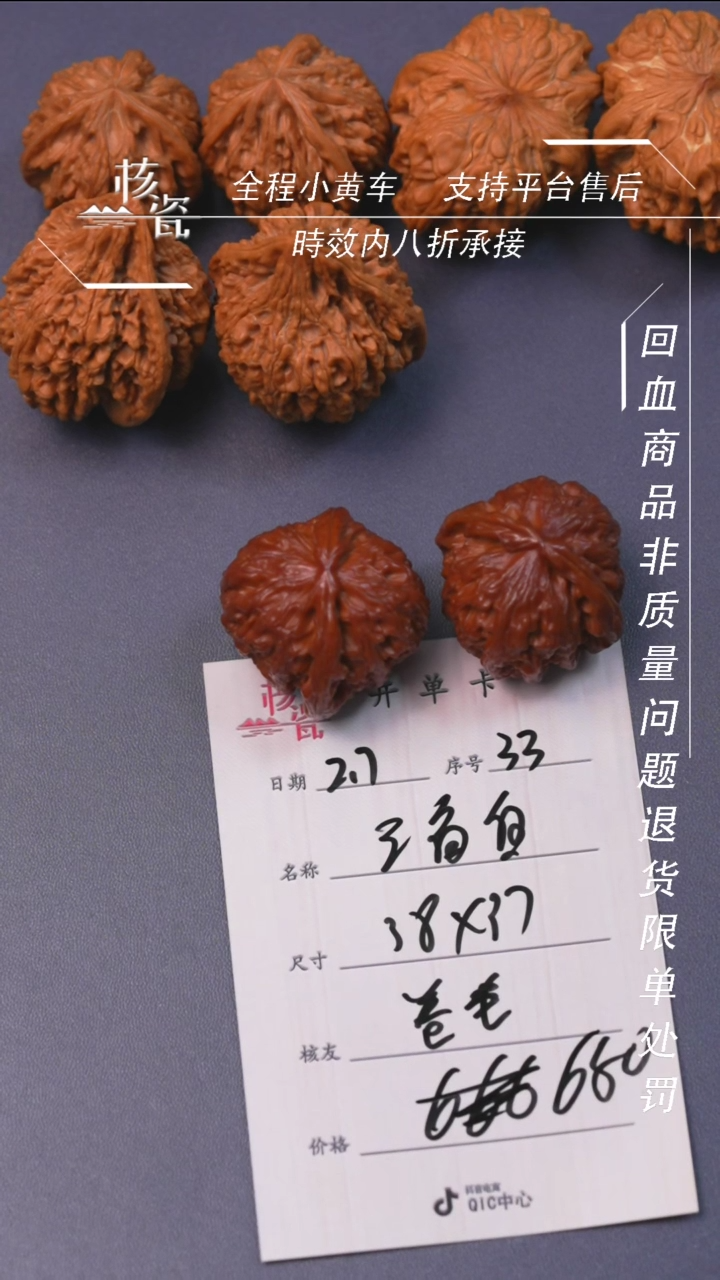 核瓷
全程小黄车 支持平台售后
時效内八折承接
回血商品非质量问题退货限单处罚
核瓷
开单卡
日期 2.7 序号 33
名称
尺寸 38X37
核友 卷毛
价格 680
抖音电商
QIC中心